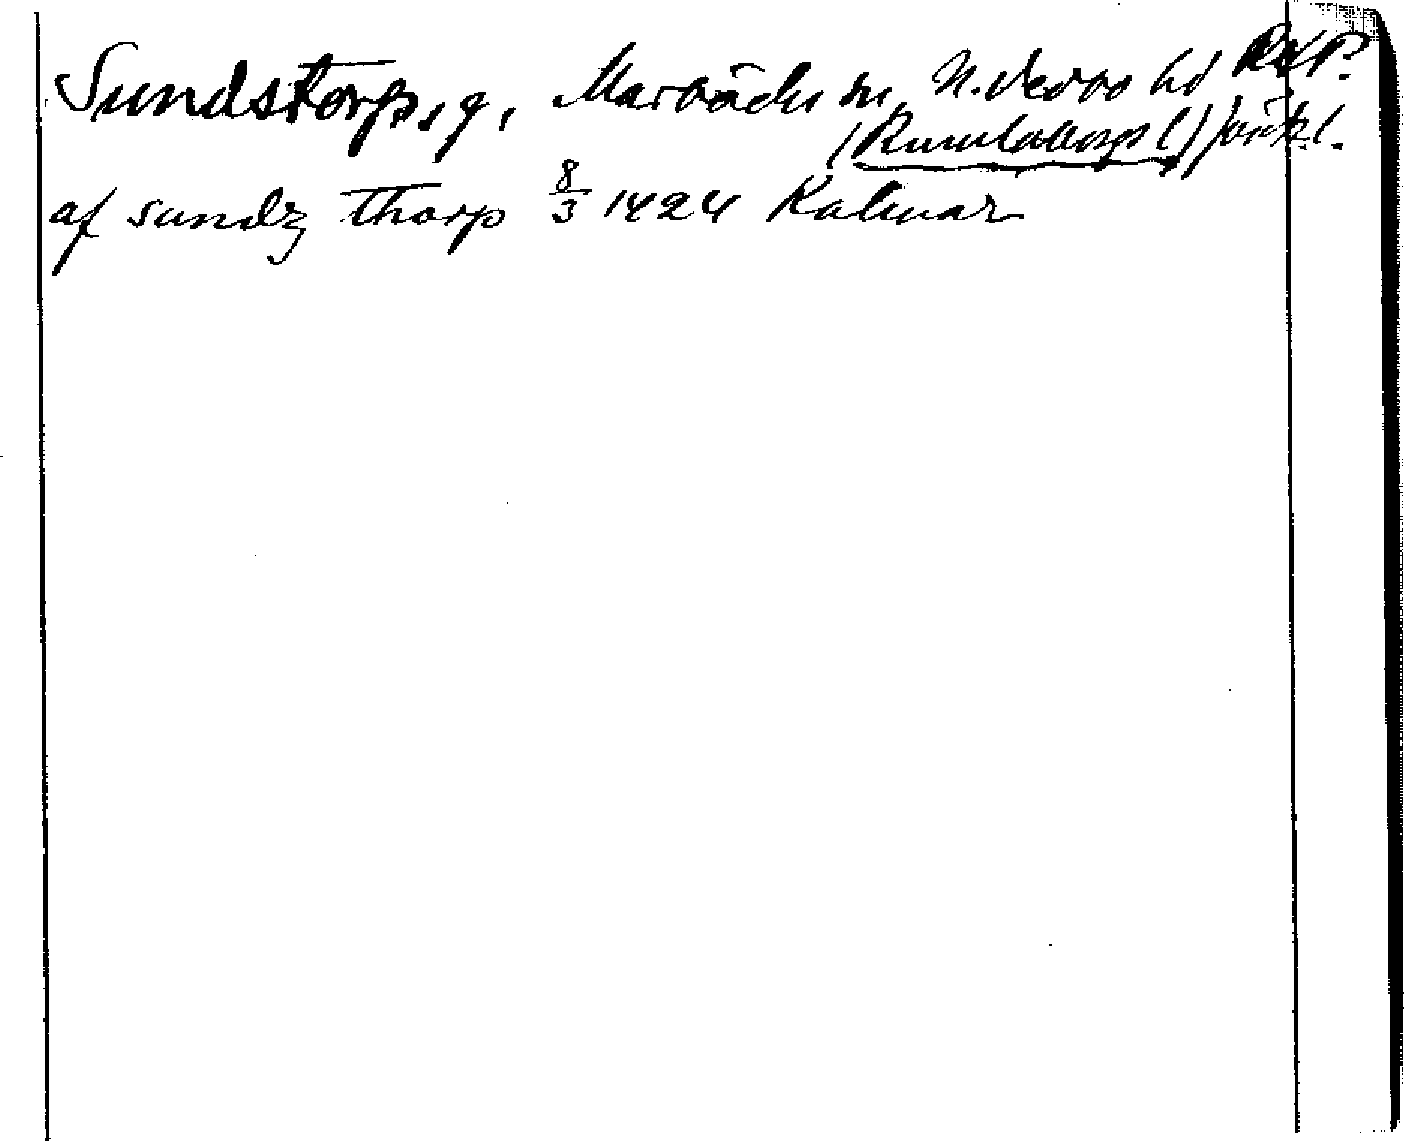 Sundstorp, g, Marbäcks sn, N. Vedbo hd RAP.
(Rumlaborgs l) Jönk l.
af sundz thorp 8/3 1424 Kalmar